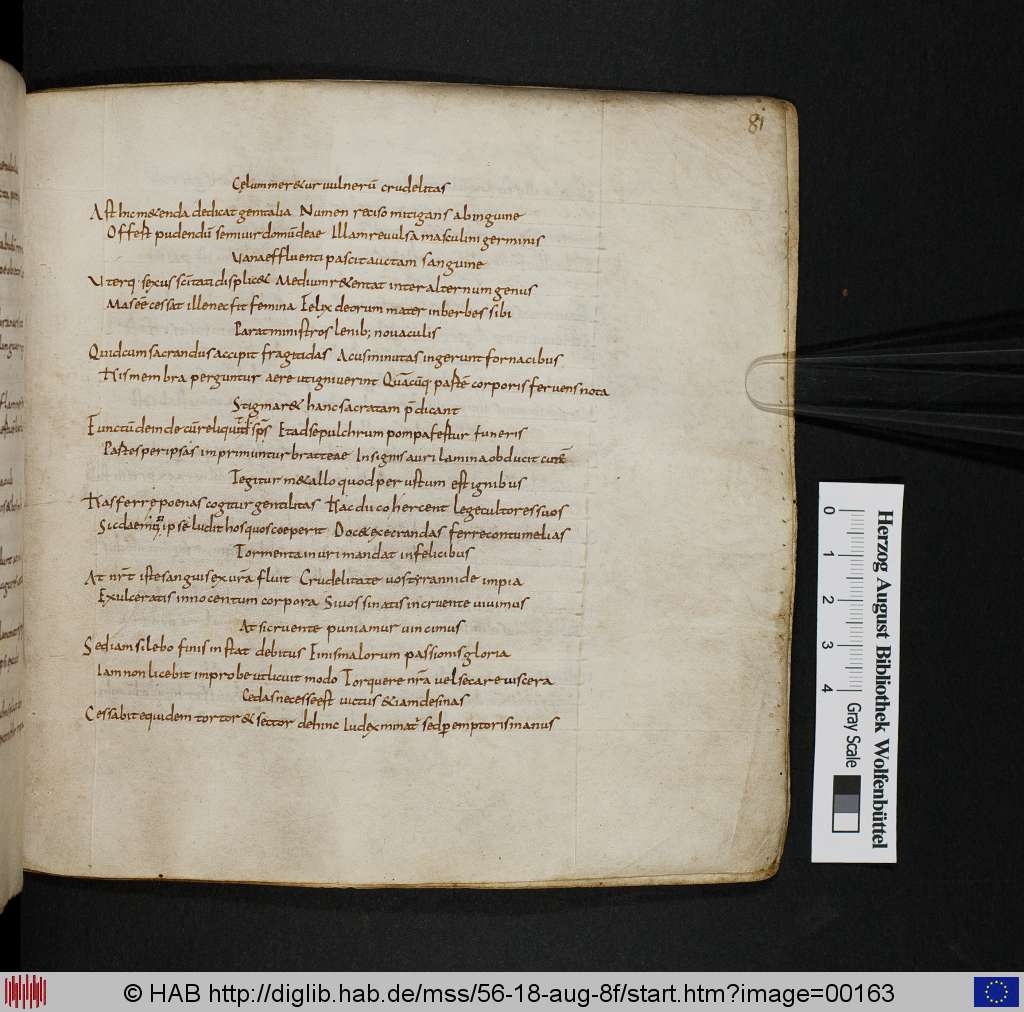 81
Cęlum meret&ur vulnerū crudelitas
Ast hic metenda dedicat genitalia Numen reciso mitigans ab inguine
Offest pudendū semivir donū deae Illam revulsa masculini germinis
Vena effluenti pascit auctam sanguine
Uterq· sexus sc̄itati displic& Medium r&entat inter alternum genus
Mas eē cessat ille nec fit femina Felix deorum mater inberbes sibi
Parat ministros lenib; novaculis
Quid cum sacrandus accipit fragitidas Acus minutas ingerunt fornacibus
His membra perguntur aere ut igniverint Quācūq· partē corporis fervens nota
Stigmar& hanc sacratam p̄dicant
Functū deinde cū reliquit sp̄s Et ad sepulchrum pompa festur funeris
Partes per ipsas imprimuntur bratteae Insignis auri lamina obducit cutē
Tegitur m&allo quod perustum est ignibus
Has ferre poenas cogitur gentilitas Hac dii cohercent lege cultores suos
Sic daemō ipse ludit hos quos coeperit Doc& execrandas ferre contumelias
Tormenta inuri mandat infelicibus
At nr̄t iste sanguis ex vr̄a fluit Crudelitate vos tyrannide impia
Exulceratis innocentum corpora Si vos sinatis incruente vivimus
At si cruente puniamur vincimus
Sed iam silebo finis instat debitus Finis malorum passionis gloria
Iam non licebit improbe ut licuit modo Torquere nr̄a vel secare viscera
Cedas necesse est victus & iam desinas
Cessabit equidem tortor & sector dehinc Iudex minat̄ sed peremptoris manus
0
1
2
3
4
Gray Scale
Herzog August Bibliothek Wolfenbüttel
© HAB http://diglib.hab.de/mss/56-18-aug-8f/start.htm?image=00163